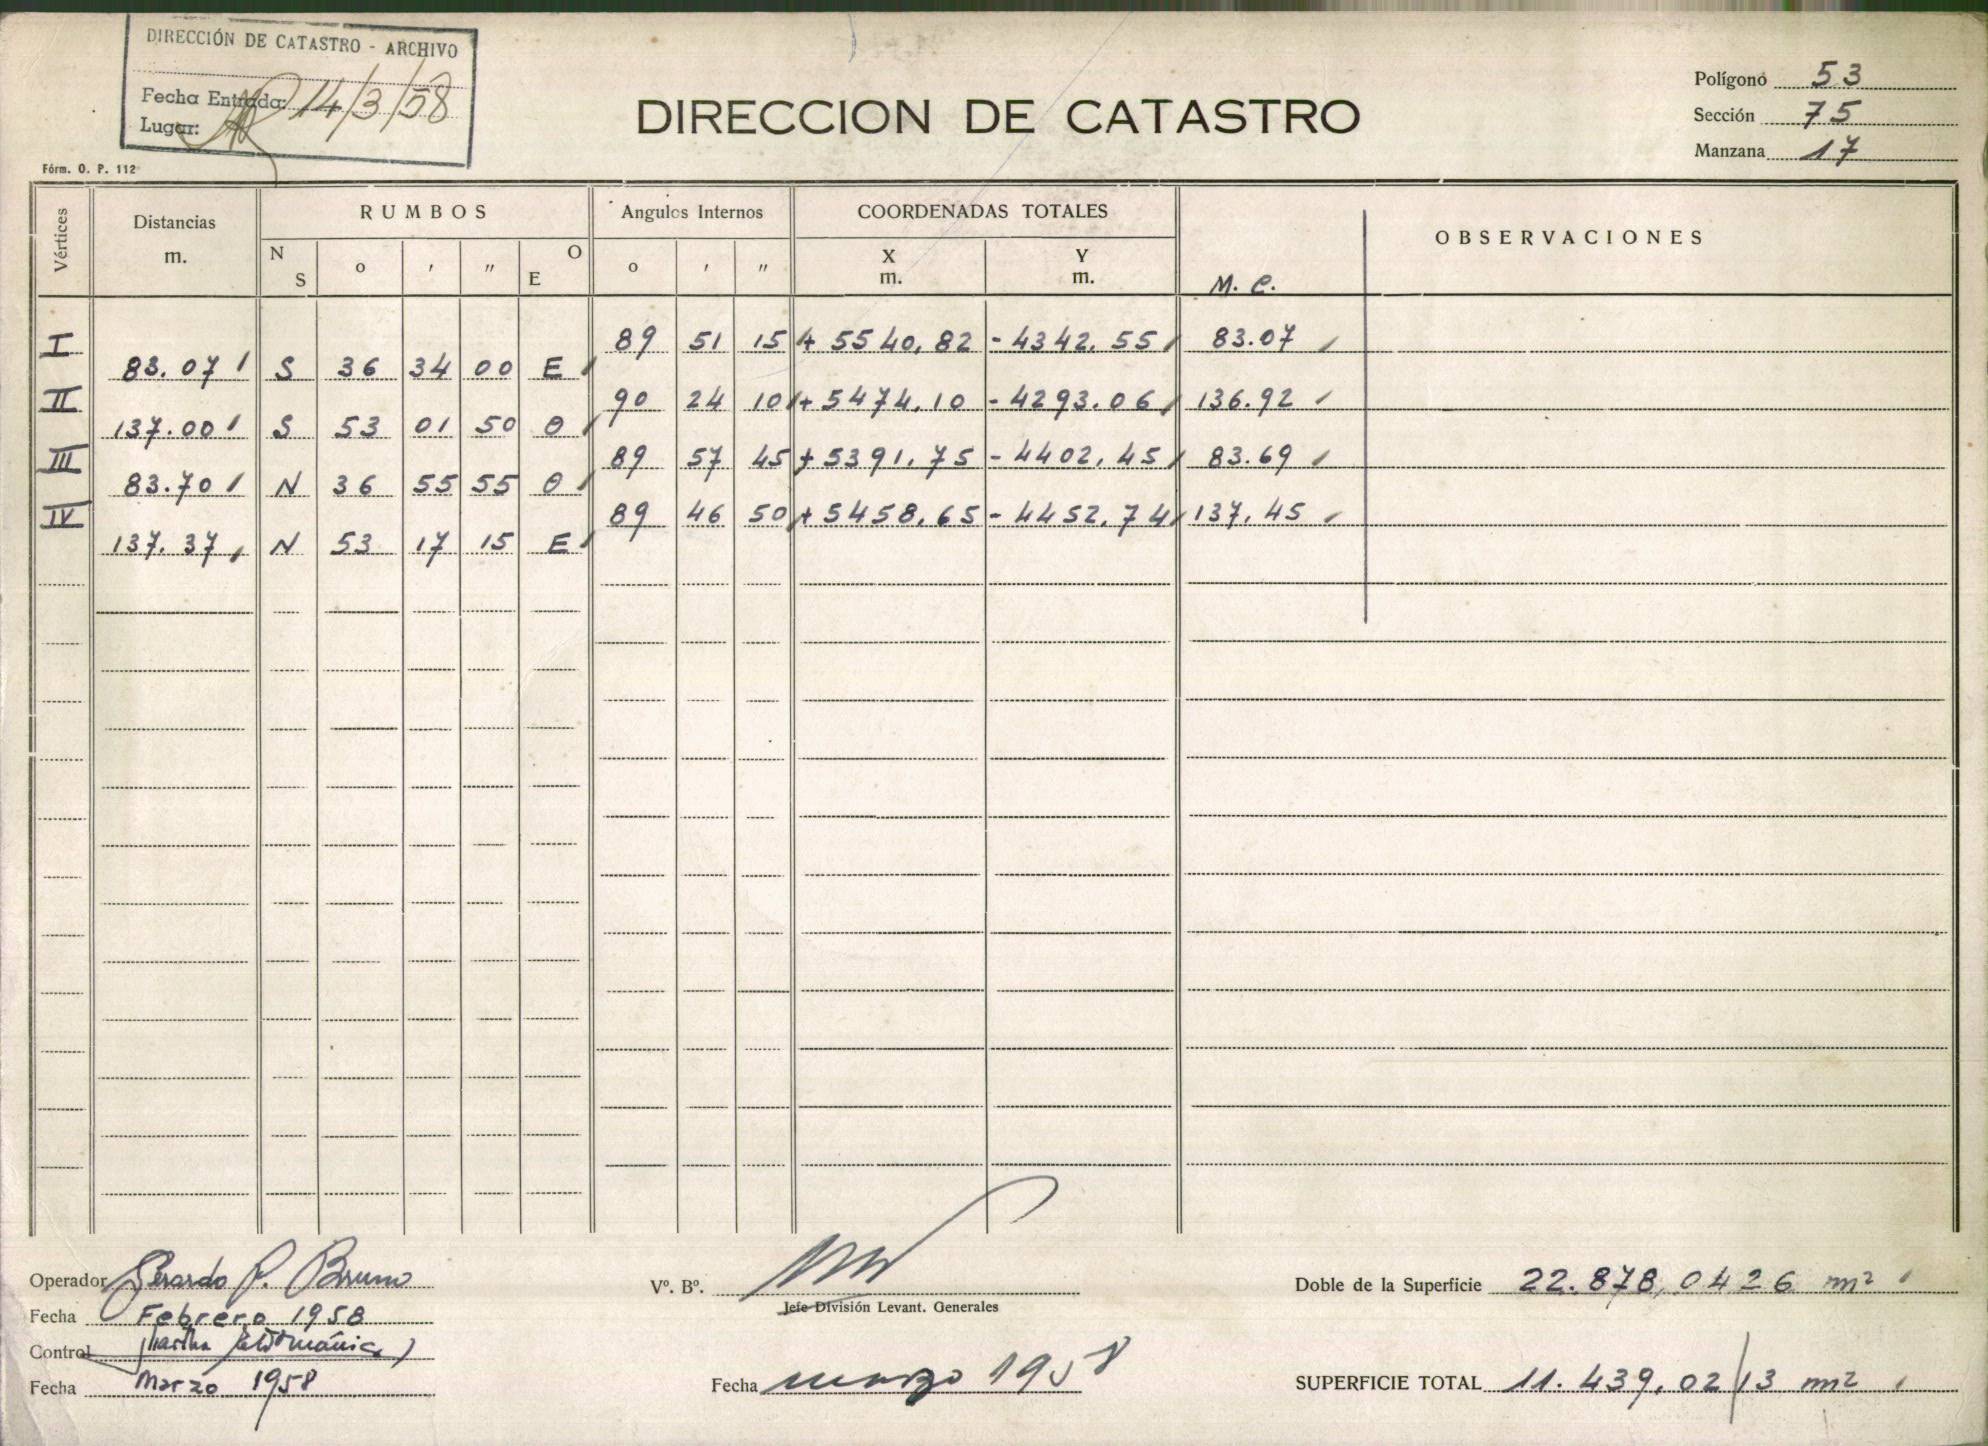 DIRECCIÓN DE CATASTRO - ARCHIVO
Fecha Entrada: 14/3/58
Lugar:
Fórm. O. P. 112
DIRECCION DE CATASTRO
Polígono 53
Sección 75
Manzana 17
Vértices Distancias m. RUMBOS Angulos Internos COORDENADAS TOTALES OBSERVACIONES
N S o ' " O E o ' " X m. Y m. M. C.
I 89 51 15 + 5540,82 - 4342,55 83.07
83.07 S 36 34 00 E
II 90 24 10 + 5474,10 - 4293.06 136.92
137.00 S 53 01 50 O
III 89 57 45 + 5391,75 - 4402,45 83.69
83.70 N 36 55 55 O
IV 89 46 50 + 5458,65 - 4452,74 137,45
137.37 N 53 17 15 E
Operador Gerardo P. Bruno
Fecha Febrero 1958
Control Martha
Fecha Marzo 1958
Vº. Bº.
Jefe División Levant. Generales
Fecha marzo 1958
Doble de la Superficie 22.878,0426 m2
SUPERFICIE TOTAL 11.439,02/13 m2